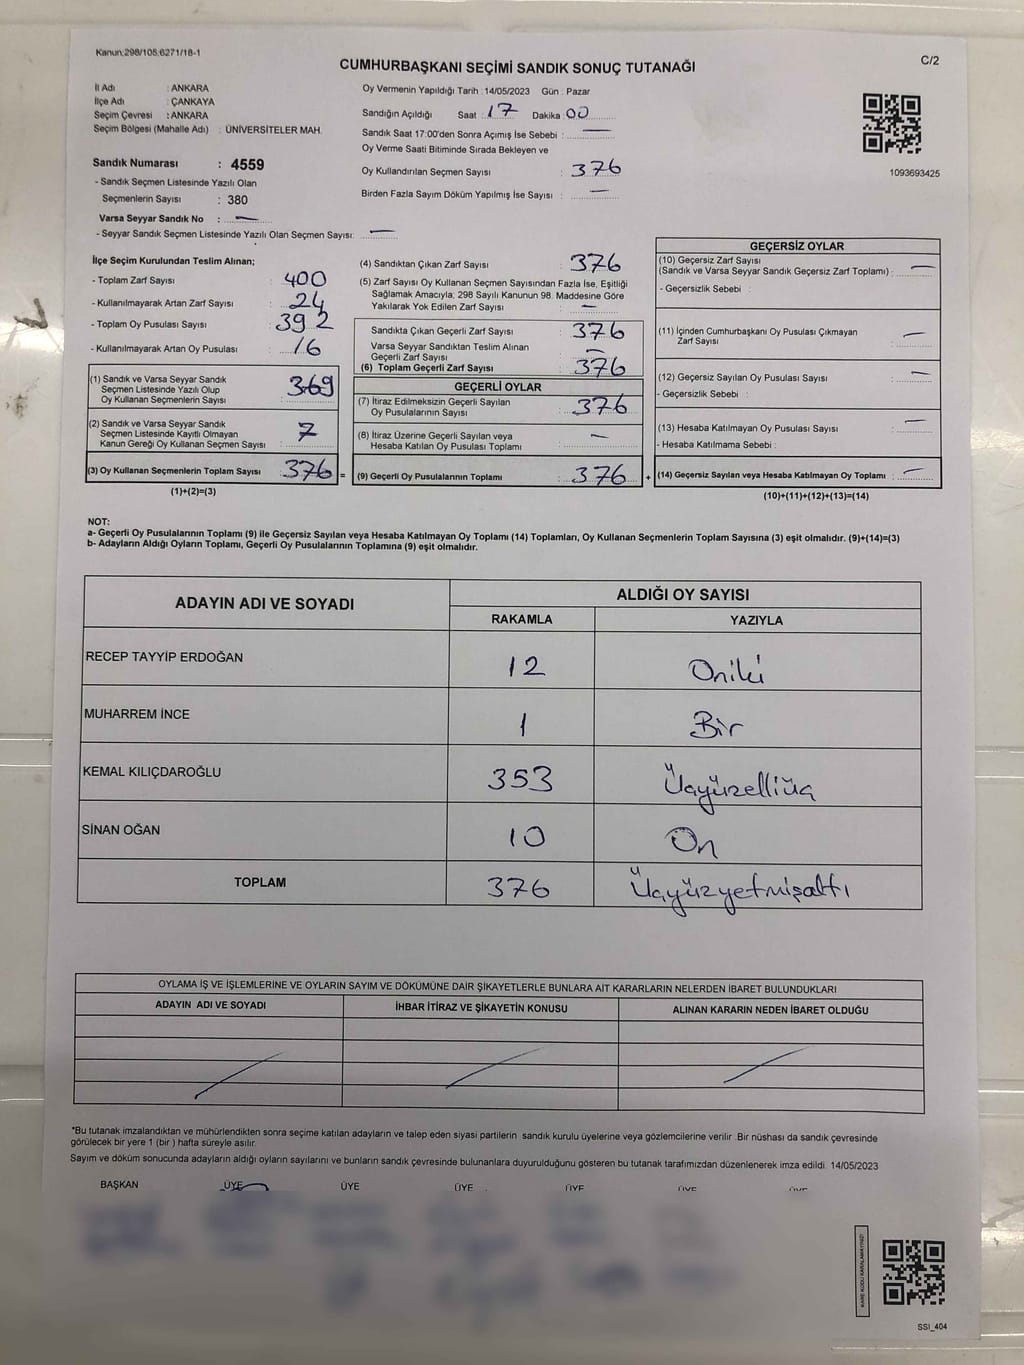 Kanun:298/105;6271/18-1
C/2
CUMHURBAŞKANI SEÇİMİ SANDIK SONUÇ TUTANAĞI
İl Adı : ANKARA
İlçe Adı : ÇANKAYA
Seçim Çevresi : ANKARA
Seçim Bölgesi (Mahalle Adı) : ÜNİVERSİTELER MAH.
Sandık Numarası : 4559
- Sandık Seçmen Listesinde Yazılı Olan
Seçmenlerin Sayısı : 380
Varsa Seyyar Sandık No : —
- Seyyar Sandık Seçmen Listesinde Yazılı Olan Seçmen Sayısı: —
Oy Vermenin Yapıldığı Tarih : 14/05/2023 Gün : Pazar
Sandığın Açıldığı Saat : 17 Dakika : 00
Sandık Saat 17:00'den Sonra Açımış İse Sebebi : —
Oy Verme Saati Bitiminde Sırada Bekleyen ve
Oy Kullandırılan Seçmen Sayısı : 376
Birden Fazla Sayım Döküm Yapılmış İse Sayısı : —
1093693425
İlçe Seçim Kurulundan Teslim Alınan;
- Toplam Zarf Sayısı : 400
- Kullanılmayarak Artan Zarf Sayısı : 24
- Toplam Oy Pusulası Sayısı : 392
- Kullanılmayarak Artan Oy Pusulası : 16
(1) Sandık ve Varsa Seyyar Sandık
Seçmen Listesinde Yazılı Olup
Oy Kullanan Seçmenlerin Sayısı : 369
(2) Sandık ve Varsa Seyyar Sandık
Seçmen Listesinde Kayıtlı Olmayan
Kanun Gereği Oy Kullanan Seçmen Sayısı : 7
(3) Oy Kullanan Seçmenlerin Toplam Sayısı : 376 =
(1)+(2)=(3)
(4) Sandıktan Çıkan Zarf Sayısı : 376
(5) Zarf Sayısı Oy Kullanan Seçmen Sayısından Fazla İse, Eşitliği
Sağlamak Amacıyla; 298 Sayılı Kanunun 98. Maddesine Göre
Yakılarak Yok Edilen Zarf Sayısı : —
Sandıkta Çıkan Geçerli Zarf Sayısı : 376
Varsa Seyyar Sandıktan Teslim Alınan
Geçerli Zarf Sayısı : —
(6) Toplam Geçerli Zarf Sayısı : 376
GEÇERLİ OYLAR
(7) İtiraz Edilmeksizin Geçerli Sayılan
Oy Pusulalarının Sayısı : 376
(8) İtiraz Üzerine Geçerli Sayılan veya
Hesaba Katılan Oy Pusulaları Toplamı : —
(9) Geçerli Oy Pusulalarının Toplamı : 376 +
GEÇERSİZ OYLAR
(10) Geçersiz Zarf Sayısı
(Sandık ve Varsa Seyyar Sandık Geçersiz Zarf Toplamı) : —
- Geçersizlik Sebebi :
(11) İçinden Cumhurbaşkanı Oy Pusulası Çıkmayan
Zarf Sayısı : —
(12) Geçersiz Sayılan Oy Pusulası Sayısı : —
- Geçersizlik Sebebi :
(13) Hesaba Katılmayan Oy Pusulası Sayısı : —
- Hesaba Katılmama Sebebi :
(14) Geçersiz Sayılan veya Hesaba Katılmayan Oy Toplamı : —
(10)+(11)+(12)+(13)=(14)
NOT:
a- Geçerli Oy Pusulalarının Toplamı (9) ile Geçersiz Sayılan veya Hesaba Katılmayan Oy Toplamı (14) Toplamları, Oy Kullanan Seçmenlerin Toplam Sayısına (3) eşit olmalıdır. (9)+(14)=(3)
b- Adayların Aldığı Oyların Toplamı, Geçerli Oy Pusulalarının Toplamına (9) eşit olmalıdır.
ADAYIN ADI VE SOYADI ALDIĞI OY SAYISI
RAKAMLA YAZIYLA
RECEP TAYYİP ERDOĞAN 12 Oniki
MUHARREM İNCE 1 Bir
KEMAL KILIÇDAROĞLU 353 Üçyüzelliüç
SİNAN OĞAN 10 On
TOPLAM 376 Üçyüzyetmişaltı
OYLAMA İŞ VE İŞLEMLERİNE VE OYLARIN SAYIM VE DÖKÜMÜNE DAİR ŞİKAYETLERLE BUNLARA AİT KARARLARIN NELERDEN İBARET BULUNDUKLARI
ADAYIN ADI VE SOYADI İHBAR İTİRAZ VE ŞİKAYETİN KONUSU ALINAN KARARIN NEDEN İBARET OLDUĞU
*Bu tutanak imzalandıktan ve mühürlendikten sonra seçime katılan adayların ve talep eden siyasi partilerin sandık kurulu üyelerine veya gözlemcilerine verilir. Bir nüshası da sandık çevresinde
görülecek bir yere 1 (bir ) hafta süreyle asılır.
Sayım ve döküm sonucunda adayların aldığı oyların sayılarını ve bunların sandık çevresinde bulunanlara duyurulduğunu gösteren bu tutanak tarafımızdan düzenlenerek imza edildi. 14/05/2023
BAŞKAN ÜYE ÜYE ÜYE ÜYE ÜYE ÜYE
KARE KODU KARALAMAYINIZ!
SSI_404